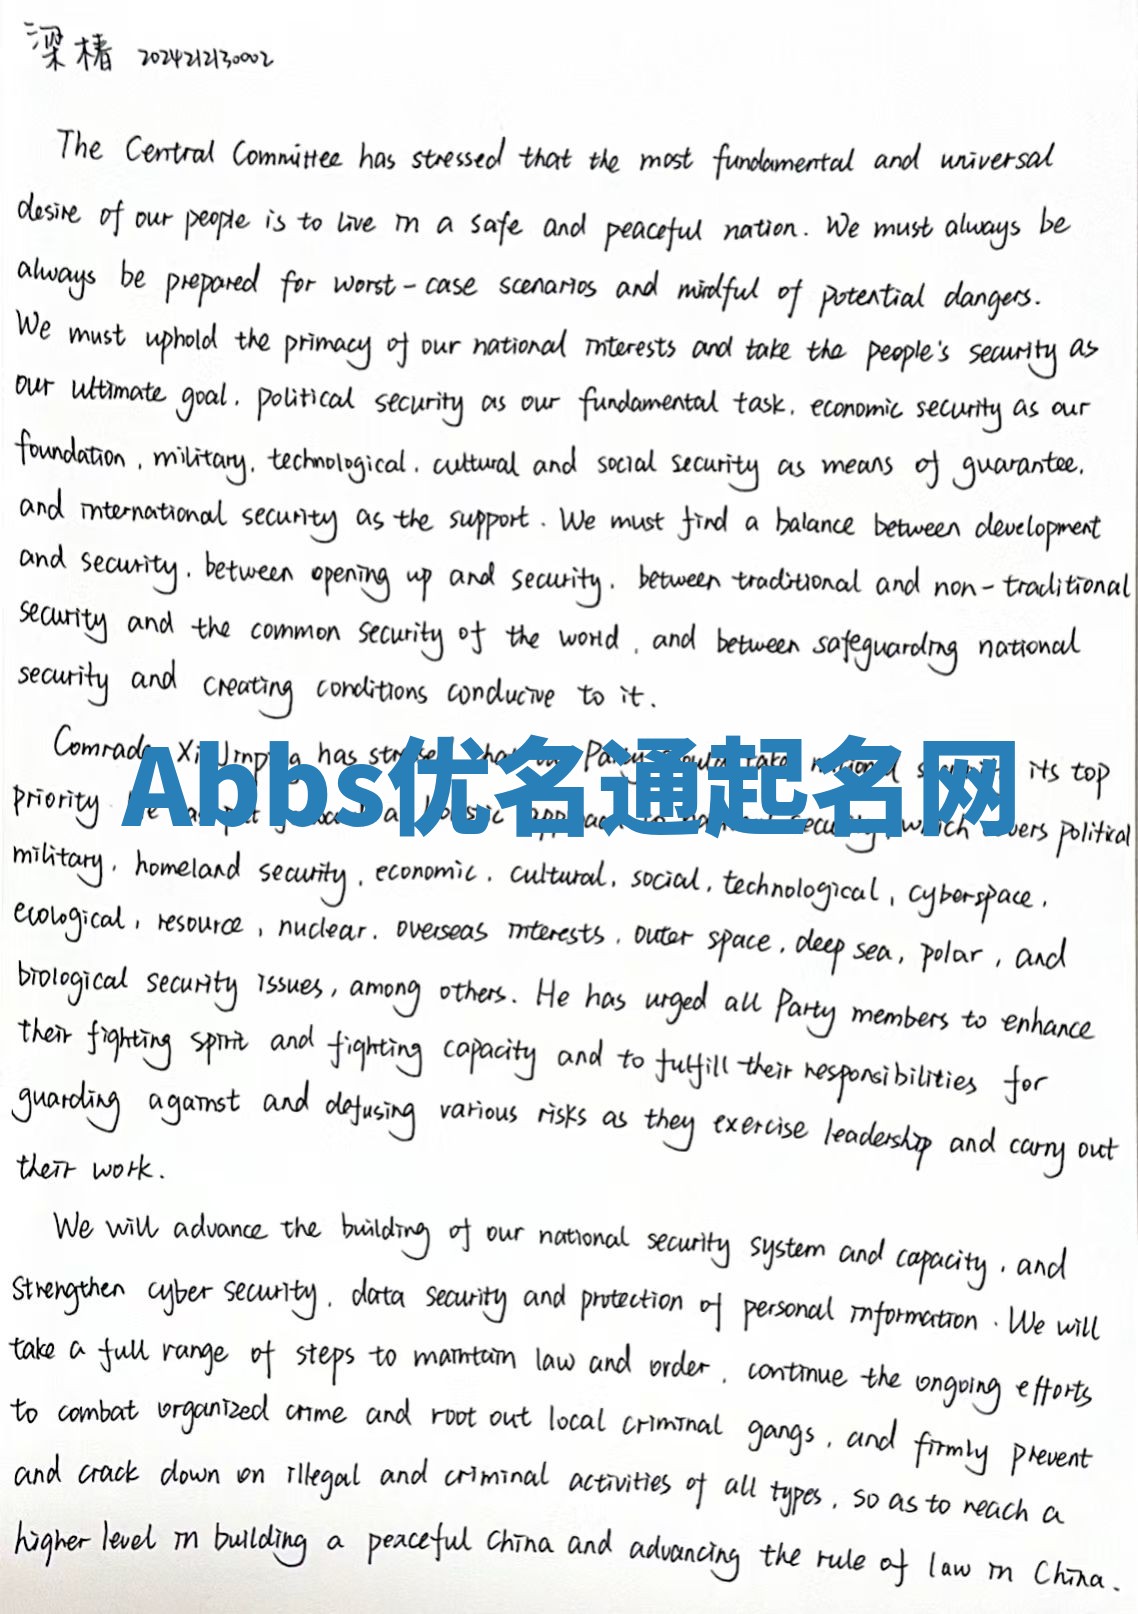 梁椿 2024212130002
The Central Committee has stressed that the most fundamental and universal
desire of our people is to live in a safe and peaceful nation. We must always be
always be prepared for worst-case scenarios and mindful of potential dangers.
We must uphold the primacy of our national interests and take the people's security as
our ultimate goal, political security as our fundamental task, economic security as our
foundation, military, technological, cultural and social security as means of guarantee,
and international security as the support. We must find a balance between development
and security, between opening up and security, between traditional and non-traditional
security and the common security of the world, and between safeguarding national
security and creating conditions conducive to it.
Comrade Xi Jinping has its top
Abbs优名通起名网
priority political
military, homeland security, economic, cultural, social, technological, cyberspace,
ecological, resource, nuclear, overseas interests, outer space, deep sea, polar, and
biological security issues, among others. He has urged all Party members to enhance
their fighting spirit and fighting capacity and to fulfill their responsibilities for
guarding against and defusing various risks as they exercise leadership and carry out
their work.
We will advance the building of our national security system and capacity, and
strengthen cyber security, data security and protection of personal information. We will
take a full range of steps to maintain law and order, continue the ongoing efforts
to combat organized crime and root out local criminal gangs, and firmly prevent
and crack down on illegal and criminal activities of all types, so as to reach a
higher level in building a peaceful China and advancing the rule of law in China.